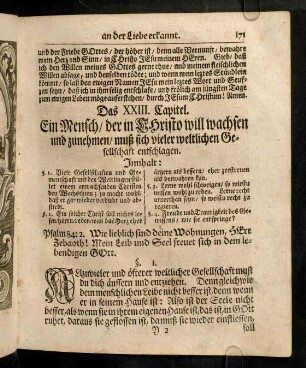 an der Liebe erkannt. 171
und der Friede GOttes / der höher ist / denn alle Vernunft / bewahre
mein Herz und Sinn / in Christo JEsu meinem HErrn. Gieb / daß
ich den Willen meines GOttes gerne thue / und meinem fleischlichen
Willen absage / und denselben tödte; und wenn mein letztes Stündlein
kömmt / so laß den ewigen Namen JEsu mein letztes Wort und Seuf-
zen seyn / daß ich in ihm selig einschlafe / und frölich am jüngsten Tage
zum ewigen Leben möge auferstehen / durch JEsum Christum! Amen.
Das XXIII. Capitel.
Ein Mensch / der in Christo will wachsen
und zunehmen / muß sich vieler weltlichen Ge-
sellschaft entschlagen.
Innhalt:
§. 1. Viele Gesellschaften und Ge-
meinschaft mit den Weltlingen ist
einem erwachsenden Christen
am ; so macht wohl
daß er gar wieder verdirbt und ab-
stirbt.
§. 2. Ein solcher Christ soll nichts le-
sen hören / dadurch das Herz eher
ärgere als bessere / eher zerstreuen
als bewahren kan.
§. 3. Lerne wohl schweigen / so wirstu
wissen wohl zu reden. Lerne recht
unterthan seyn / so weistu recht zu
regieren.
§. 4. Freude und Traurigkeit des Ge-
wissens / wie sie entspringe?
Psalm 84.2. Wie lieblich sind deine Wohnungen, HErr
Zebaoth! Mein Leib und Seel freuet sich in dem le-
bendigen GOtt.
§. 1.
Allzuvieler und öfterer weltlicher Gesellschaft must
du dich äussern und entziehen. Denn gleichwie
dem menschlichen Leibe nicht besser ist, denn wenn
er in seinem Hause ist: Also ist der Seele nicht
besser, als wenn sie in ihrem eigenen Hause ist, das ist, in GOtt
ruhet, daraus sie geflossen ist, da muß sie wieder einfliessen,
Y 2 soll